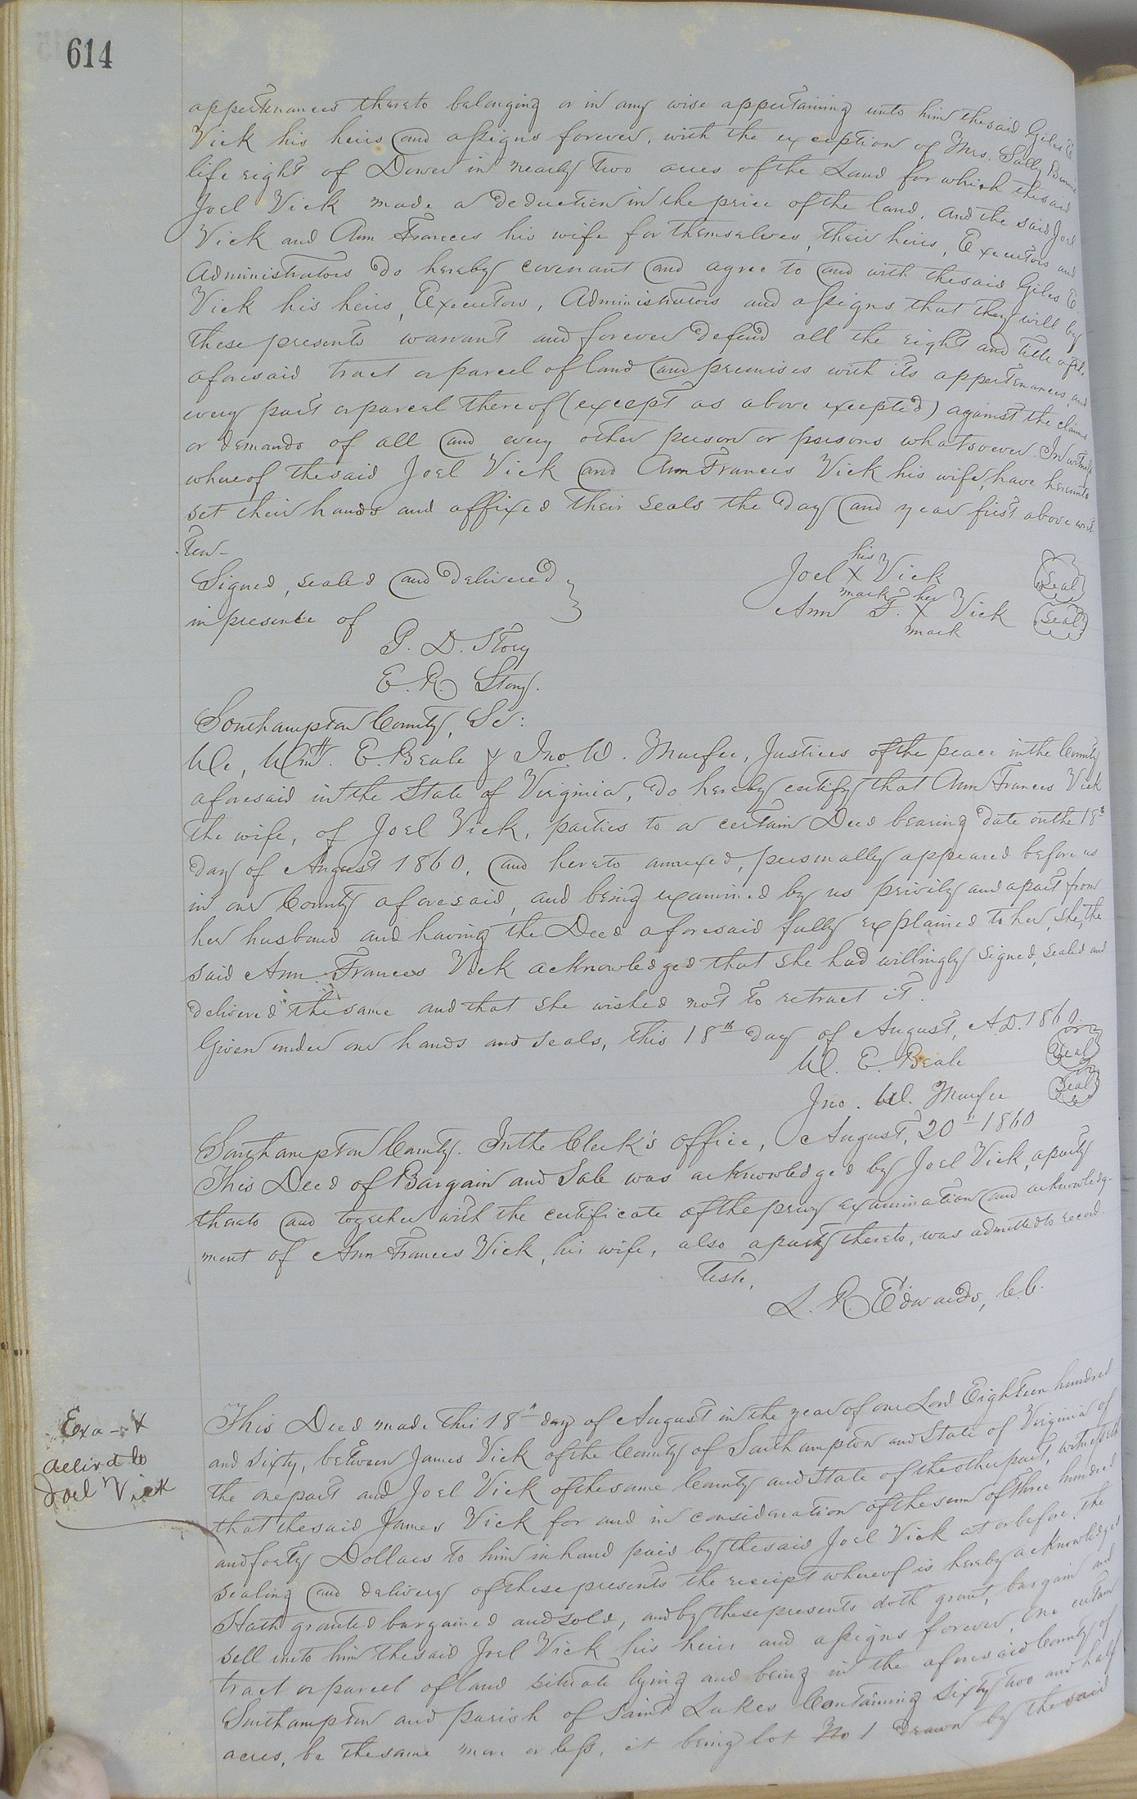 614
appertenances thereto belonging or in any wise appertaining unto him the said Giles E
Vick his heirs and assigns forever, with the exception of Mrs. Sally
life right of Dower in nearly two acres of the Land for which the said
Joel Vick made a deduction in the price of the land. And the said Joel
Vick and Ann Frances his wife for themselves, their heirs, Executors and
Administrators do hereby covenant and agree to and with the said Giles E
Vick his heirs, Executors, Administrators and assigns that they will by
these presents warrant and forever defend all the right and title of the
aforesaid tract or parcel of land and premises with its appertenances, and
every part or parcel thereof (except as above excepted) against the claims
or demands of all and every other person or persons whatsoever In witness
whereof the said Joel Vick and Ann Frances Vick his wife, have hereunto
set their hands and affixed their seals the day and year first above writ
ten-
Signed, sealed and delivered
in presence of
his
Joel X Vick Seal
mark her
Ann F. X Vick Seal
mark
P. D. Story
E. R. Story.
Southampton County, Sc:
We, Wm. E. Beale & Jno. W. Murfee, Justices of the peace in the County
aforesaid in the State of Virginia, do hereby certify that Ann Frances Vick
the wife, of Joel Vick, parties to a certain Deed bearing date on the 18th
day of August 1860, and hereto annexed, personally appeared before us
in our County aforesaid, and being examined by us privily and apart from
her husband and having the Deed aforesaid fully explained to her, she, the
said Ann Frances Vick acknowledged that she had willingly signed, sealed and
delivered the same and that she wished not to retract it.
Given under our hands and seals, this 18th day of August, A.D. 1860.
W. E. Beale Seal
Jno. W. Murfee Seal
Southampton County. In the Clerk's office, August, 20th 1860
This Deed of Bargain and Sale was acknowledged by Joel Vick, a party
thereto and together with the certificate of the privy examination and acknowledg-
ment of Ann Frances Vick, his wife, also a party thereto, was admitted to record.
Teste,
L. R. Edwards, C.C.
Exa- &
deliv'd to
Joel Vick
This Deed made this 18th day of August in the year of our Lord Eighteen hundred
and sixty, between James Vick of the County of Southampton and State of Virginia of
the one part and Joel Vick of the same County and State of the other part, witnesseth
that the said James Vick for and in consideration of the sum of three hundred
and forty Dollars to him in hand paid by the said Joel Vick at or before the
sealing and delivery of these presents the receipt whereof is hereby acknowledged
Hath granted bargained and sold, and by these presents doth grant, bargain and
sell unto him the said Joel Vick his heirs and assigns forever, One certain
tract or parcel of land situate lying and being in the aforesaid County of
Southampton and parish of Saint Lukes Containing sixty two and half
acres, be the same more or less, it being lot No 1 drawn by the said